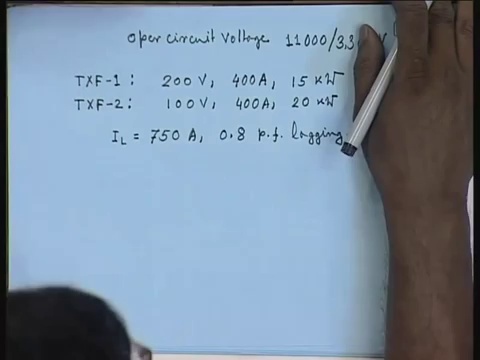 Open circuit Voltage 11000/3,3
TXF-1: 200 V, 400A, 15 KW
TXF-2: 100 V, 400A, 20 KW
I_L = 750 A, 0.8 p.f. lagging